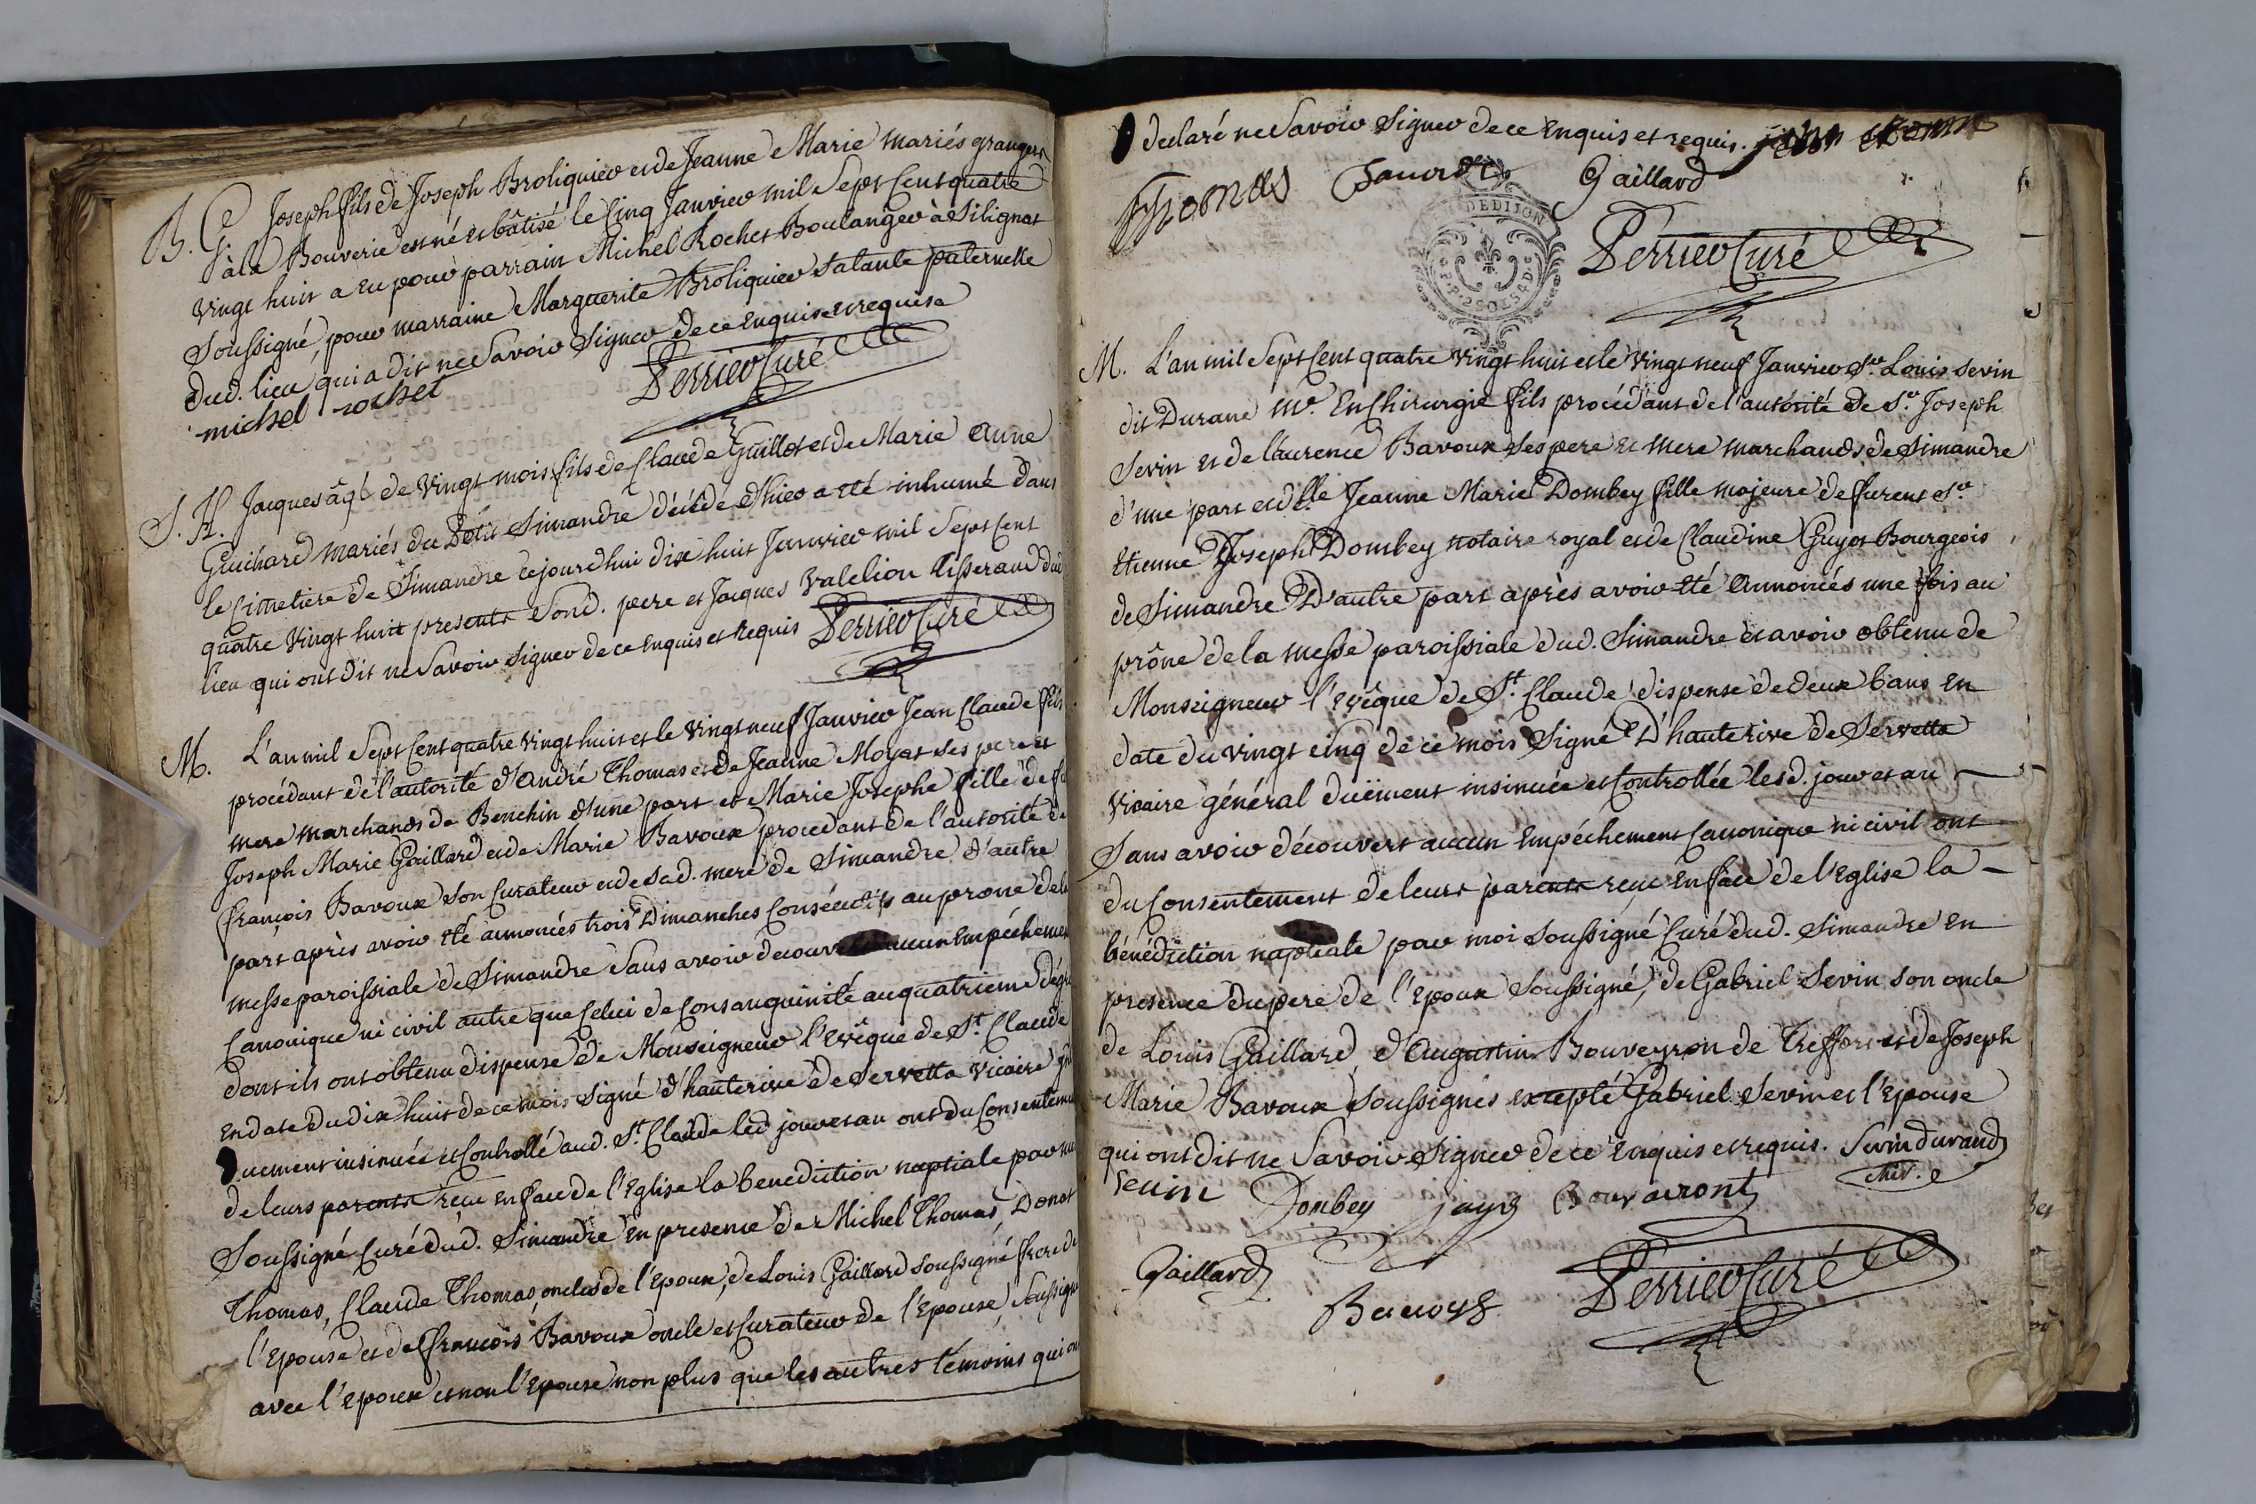 B. G. Joseph fils de Joseph Broliquier et de Jeanne Marie mariés grangers
à la Bouverie est né et bâtisé le cinq Janvier mil sept cent quatre
vingt huit a eu pour parrain Michel Rochet Boulanger à Silignat
soussigné, pour marraine Marguerite Broliquier sa tante paternelle
dud. lieu qui a dit ne savoir signer de ce enquise et requise
michel rochet Perrier Curé
S. H. Jacques âgé de vingt mois fils de Claude Guillot et de Marie Anne
Guichard mariés du Petit Simandre décédé d'hier a été inhumé dans
le Cimetiere de Simandre cejourdhui dix huit Janvier mil sept cent
quatre vingt huit presents sond. pere et Jacques Valelion tisserand dud
lieu qui ont dit ne savoir signer de ce enquis et requis Perrier Curé
M. L'an mil sept cent quatre vingt huit et le vingt neuf Janvier Jean Claude fils
procédant de l'autorité d'andré Thomas et de Jeanne Moyat ses pere et
mere marchands de Benchin d'une part et Marie Josephe fille de fu
Joseph Marie Gaillard et de Marie Bavoux procedant de l'autorité de
françois Bavoux son Curateur et de sad. mere de Simandre d'autre
part après avoir été annoncés trois Dimanches consécutifs au prone de la
messe paroissiale de Simandre sans avoir decouvert aucun Empéchement
Canonique ni civil autre que celui de Consanguinité au quatrieme dégré
dont ils ont obtenu dispense de Monseigneur l'Evêque de St. Claude
en date du dix huit de ce mois signé d'hauterive de Servetta vicaire gñ
duement insinuée et Controllé aud. St. Claude led jour et an ont du Consentemen
de leurs parents reçu en face de l'Eglise la benediction nuptiale par moi
soussigné Curé dud. Simandre en presence de Michel Thomas, Donat
Thomas, Claude Thomas oncles de l'Epoux, de Louis Gaillard soussigné frere de
l'Epouse et de françois Bavoux oncle et Curateur de l'Epouse, soussigné
avec l'epoux et non l'Epouse non plus que les autres témoins qui on
declaré ne savoir signer de ce Enquis et requis.
Thomas Gaillard
DE DIJON
Perrier Curé
M. L'an mil sept cent quatre vingt huit et le vingt neuf Janvier Sr. Louis Sevin
dit Durand Me. En Chirurgie fils procédant de l'autorité de Sr. Joseph
Sevin et de laurence Bavoux ses pere et mere marchands de Simandre
d'une part et dlle Jeanne Marie Dombey fille majeure de furent Sr.
Etienne Joseph Dombey notaire royal et de Claudine Guyot Bourgeois
de Simandre D'autre part après avoir été annoncés une fois au
prône de la messe paroissiale dud. Simandre et avoir obtenu de
Monseigneur l'evêque de St. Claude dispense de deux bans en
date du vingt cinq de ce mois signé D'hauterive de Servetta
vicaire général duëment insinuée et Controllée lesd. jour et an
sans avoir découvert aucun Empéchement Canonique ni civil ont
du Consentement de leurs parents reçu en face de l'Eglise la
bénédiction nuptiale par moi soussigné Curé dud. Simandre en
presence du pere de l'epoux soussigné, de Gabriel Sevin son oncle
de Louis Gaillard, d'Augustin Bouveyron de Treffort et de Joseph
Marie Bavoux soussignés excepté Gabriel Sevin et l'epouse
qui ont dit ne savoir signer de ce enquis et requis. Sevin durand
chir.
Sevin Dombey jays Bouvairont
Gaillard
Bavoux Perrier Curé